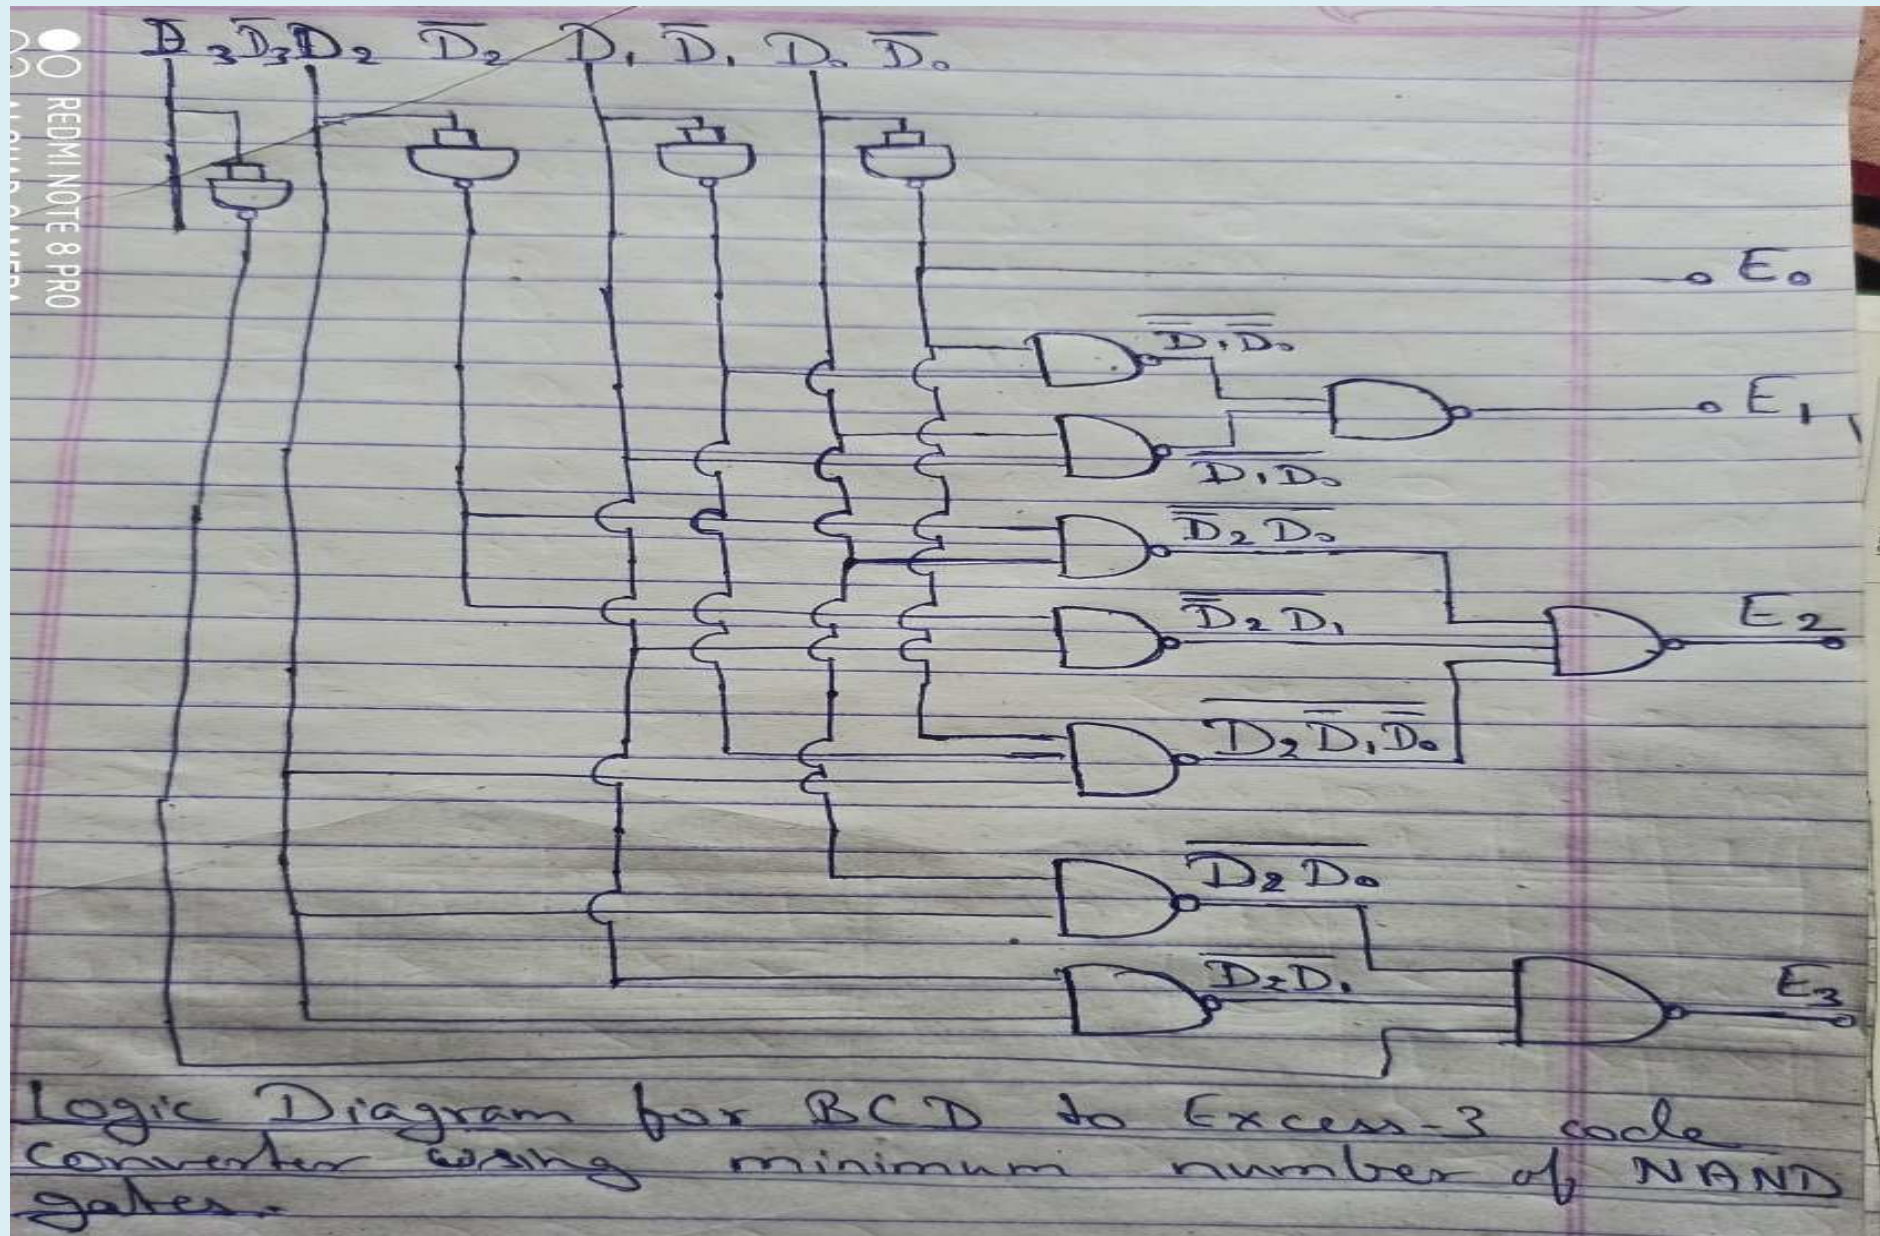 D₃ D̅₃ D₂ D̅₂ D₁ D̅₁ D₀ D̅₀
REDMI NOTE 8 PRO
E₀
\overline{D̅₁D̅₀}
E₁
\overline{D₁D₀}
\overline{D̅₂D₀}
\overline{D̅₂D₁}
E₂
\overline{D₂D̅₁D̅₀}
\overline{D₂D₀}
\overline{D₂D₁}
E₃
Logic Diagram for BCD to Excess-3 code
converter using minimum number of NAND
gates.